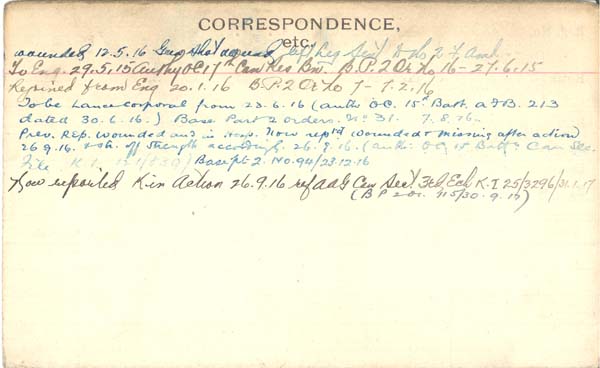 CORRESPONDENCE,
etc.
wounded 12.5.16 Gun Shot wound left leg Sent to No 2 F. Amb.
To Eng. 29.5.15 Authy OC 17th Can Res Bn. B.P.2 Or No 16 - 27.6.15
Rejoined from Eng 20.1.16 B.P.2 Or No 7 - 7.2.16
To be Lance corporal from 23.6.16 (auth: O.C. 15th Batt. a.F.B. 213
dated 30.6.16.) Base Part 2 orders. No 31. 7.8.16.
Prev. Rep. Wounded and in Hosp. Now reptd wounded & missing after action
26.9.16. & off strength accordingly. 26.9.16. (auth: OC 15 Battn Can Sec.
file K.) Base pt 2. No. 94/23.12.16
Now reported K. in Action 26.9.16 ref a a G Can Sect 3rd Ech K.I 25/3296/31.1.17
(B P 2 Or. 30.9.16)